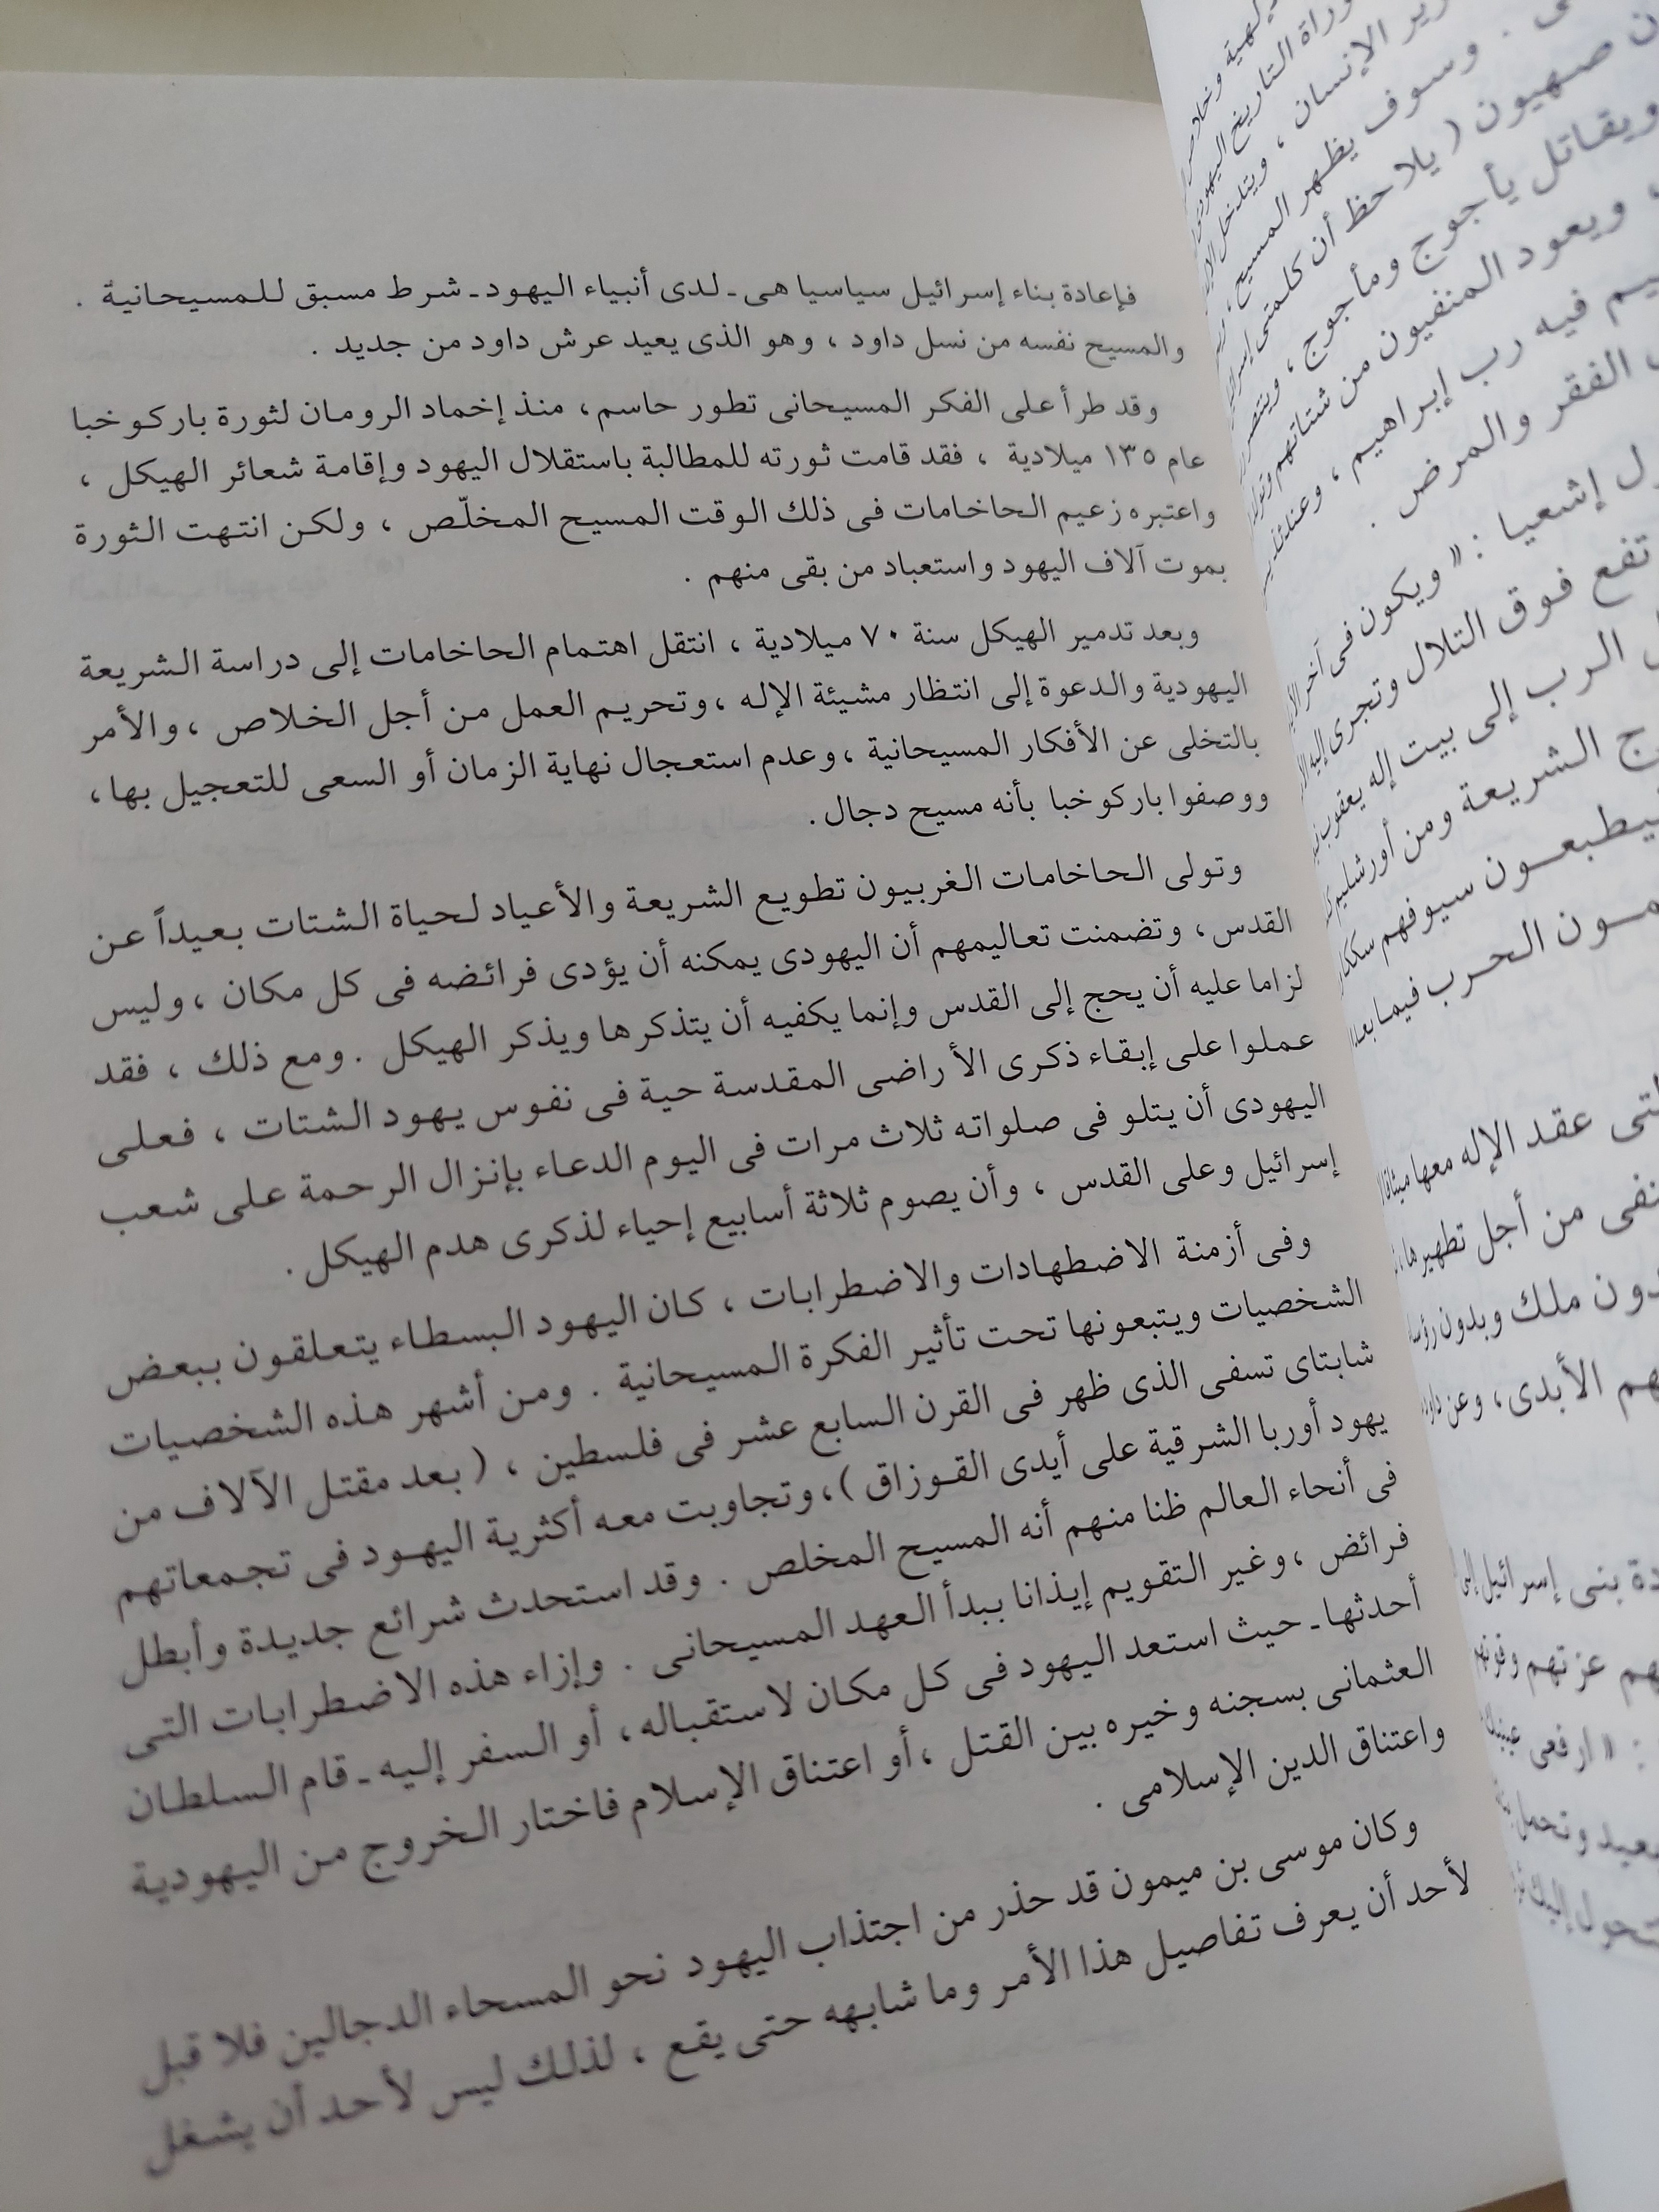 فإعادة بناء إسرائيل سياسيا هى ـ لدى أنبياء اليهود ـ شرط مسبق للمسيحانية .
والمسيح نفسه من نسل داود ، وهو الذى يعيد عرش داود من جديد .
وقد طرأ على الفكر المسيحانى تطور حاسم، منذ إخماد الرومان لثورة باركوخبا
عام ١٣٥ ميلادية ، فقد قامت ثورته للمطالبة باستقلال اليهود وإقامة شعائر الهيكل ،
واعتبره زعيم الحاخامات فى ذلك الوقت المسيح المخلّص ، ولكن انتهت الثورة
بموت آلاف اليهود واستعباد من بقى منهم .
وبعد تدمير الهيكل سنة ٧٠ ميلادية ، انتقل اهتمام الحاخامات إلى دراسة الشريعة
اليهودية والدعوة إلى انتظار مشيئة الإله ، وتحريم العمل من أجل الخلاص ، والأمر
بالتخلى عن الأفكار المسيحانية ، وعدم استعجال نهاية الزمان أو السعى للتعجيل بها ،
ووصفوا باركوخبا بأنه مسيح دجال .
وتولى الحاخامات الغربيون تطويع الشريعة والأعياد لحياة الشتات بعيداً عن
القدس ، وتضمنت تعاليمهم أن اليهودى يمكنه أن يؤدى فرائضه فى كل مكان ، وليس
لزاما عليه أن يحج إلى القدس وإنما يكفيه أن يتذكرها ويذكر الهيكل . ومع ذلك ، فقد
عملوا على إبقاء ذكرى الأراضى المقدسة حية فى نفوس يهود الشتات ، فعلى
اليهودى أن يتلو فى صلواته ثلاث مرات فى اليوم الدعاء بإنزال الرحمة على شعب
إسرائيل وعلى القدس ، وأن يصوم ثلاثة أسابيع إحياء لذكرى هدم الهيكل .
وفى أزمنة الاضطهادات والاضطرابات ، كان اليهود البسطاء يتعلقون ببعض
الشخصيات ويتبعونها تحت تأثير الفكرة المسيحانية . ومن أشهر هذه الشخصيات
شابتاى تسفى الذى ظهر فى القرن السابع عشر فى فلسطين ، ( بعد مقتل الآلاف من
يهود أوربا الشرقية على أيدى القوزاق )، وتجاوبت معه أكثرية اليهود فى تجمعاتهم
فى أنحاء العالم ظنا منهم أنه المسيح المخلص . وقد استحدث شرائع جديدة وأبطل
فرائض ، وغير التقويم إيذانا ببدأ العهد المسيحانى . وإزاء هذه الاضطرابات التى
أحدثها ـ حيث استعد اليهود فى كل مكان لاستقباله ، أو السفر إليه ـ قام السلطان
العثمانى بسجنه وخيره بين القتل ، أو اعتناق الإسلام فاختار الخروج من اليهودية
واعتناق الدين الإسلامى .
وكان موسى بن ميمون قد حذر من اجتذاب اليهود نحو المسحاء الدجالين فلا قبل
لأحد أن يعرف تفاصيل هذا الأمر وما شابهه حتى يقع ، لذلك ليس لأحد أن يشغل
وراة التاريخ اليهودى
رير الإنسان ، ويتدخل
ى . وسوف يظهر المسيح ،
ن صهيون ( يلاحظ أن كلمتى
ويقاتل يأجوج ومأجوج ، وينتصر
ويعود المنفيون من شتاتهم
يم فيه رب إبراهيم ، وعندئذ
الفقر والمرض .
ل إشعيا : « ويكون فى آخر
تفع فوق التلال وتجرى إليه
الرب إلى بيت إله يعقوب
ج الشريعة ومن أورشليم
يطبعون سيوفهم سككا
مون الحرب فيما بعد
تى عقد الإله معها ميثاقا
نفى من أجل تطهيرها
دون ملك وبدون
هم الأبدى ، وعن
دة بنى إسرائيل إلى
هم عزتهم وقوتهم
: « ارفعى عينيك
بعيد وتحمل
تتحول إليك